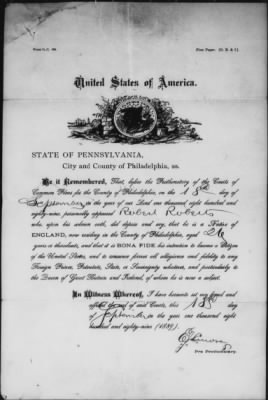 First Paper.
United States of America.
STATE OF PENNSYLVANIA,
City and County of Philadelphia, ss.
Be it Remembered, That, before the Prothonotary of the Courts of
Common Pleas for the County of Philadelphia, on the 18th day of
September in the year of our Lord one thousand eight hundred and
eighty-nine personally appeared Robert Roberts
who, upon his solemn oath, did depose and say, that he is a Native of
ENGLAND, now residing in the County of Philadelphia, aged 26
years or thereabouts, and that it is BONA FIDE his intention to become a Citizen
of the United States, and to renounce forever all allegiance and fidelity to any
Foreign Prince, Potentate, State, or Sovereignty whatever, and particularly to
the Queen of Great Britain and Ireland, of whom he is now a subject.
In Witness Whereof, I have hereunto set my hand and
affixed the seal of said Courts, this 18th day
of September in the year one thousand eight
hundred and eighty-nine (1889).
Pro Prothonotary.